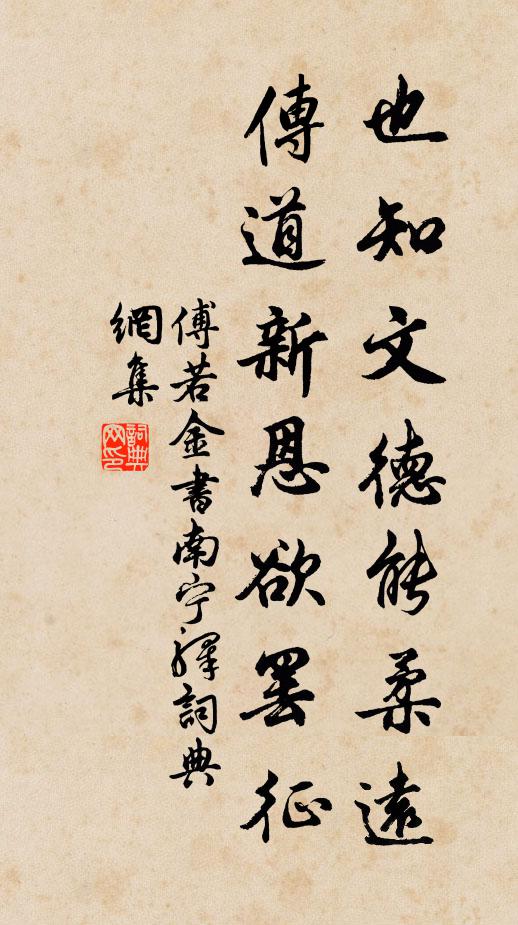 也知文德能柔遠
傳道新恩欲罷征
傅若金書南宁驛詞典
網集
詞典網印